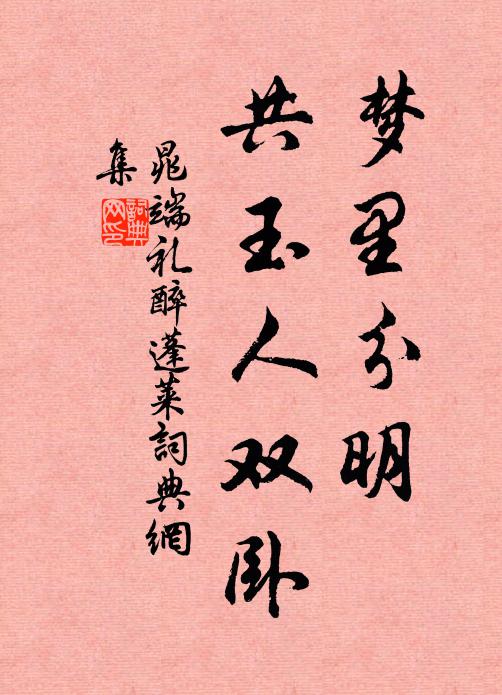 梦里分明
共玉人双卧
晁端礼醉蓬莱詞典網
集
詞典
网印